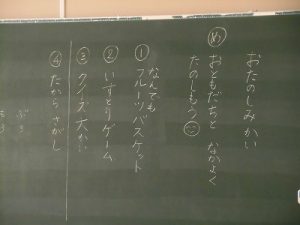 おたのしみ かい
め おともだちと なかよく
たのしもう
① なんでも
フルーツバスケット
② いすとりゲーム
③ クイズ大かい
④ たから さがし